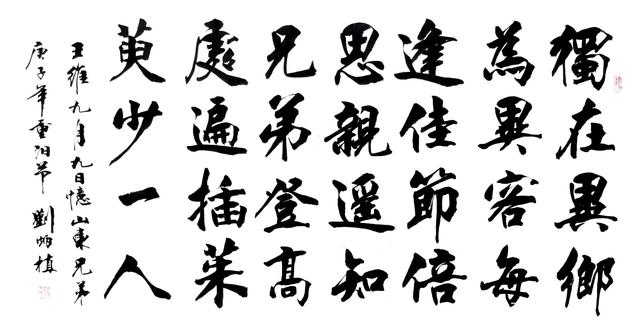 獨在異鄉
為異客每
逢佳節倍
思親遥知
兄弟登高
處遍插茱
萸少一人
王維九月九日憶山東兄弟
庚子年重阳节 劉炳植